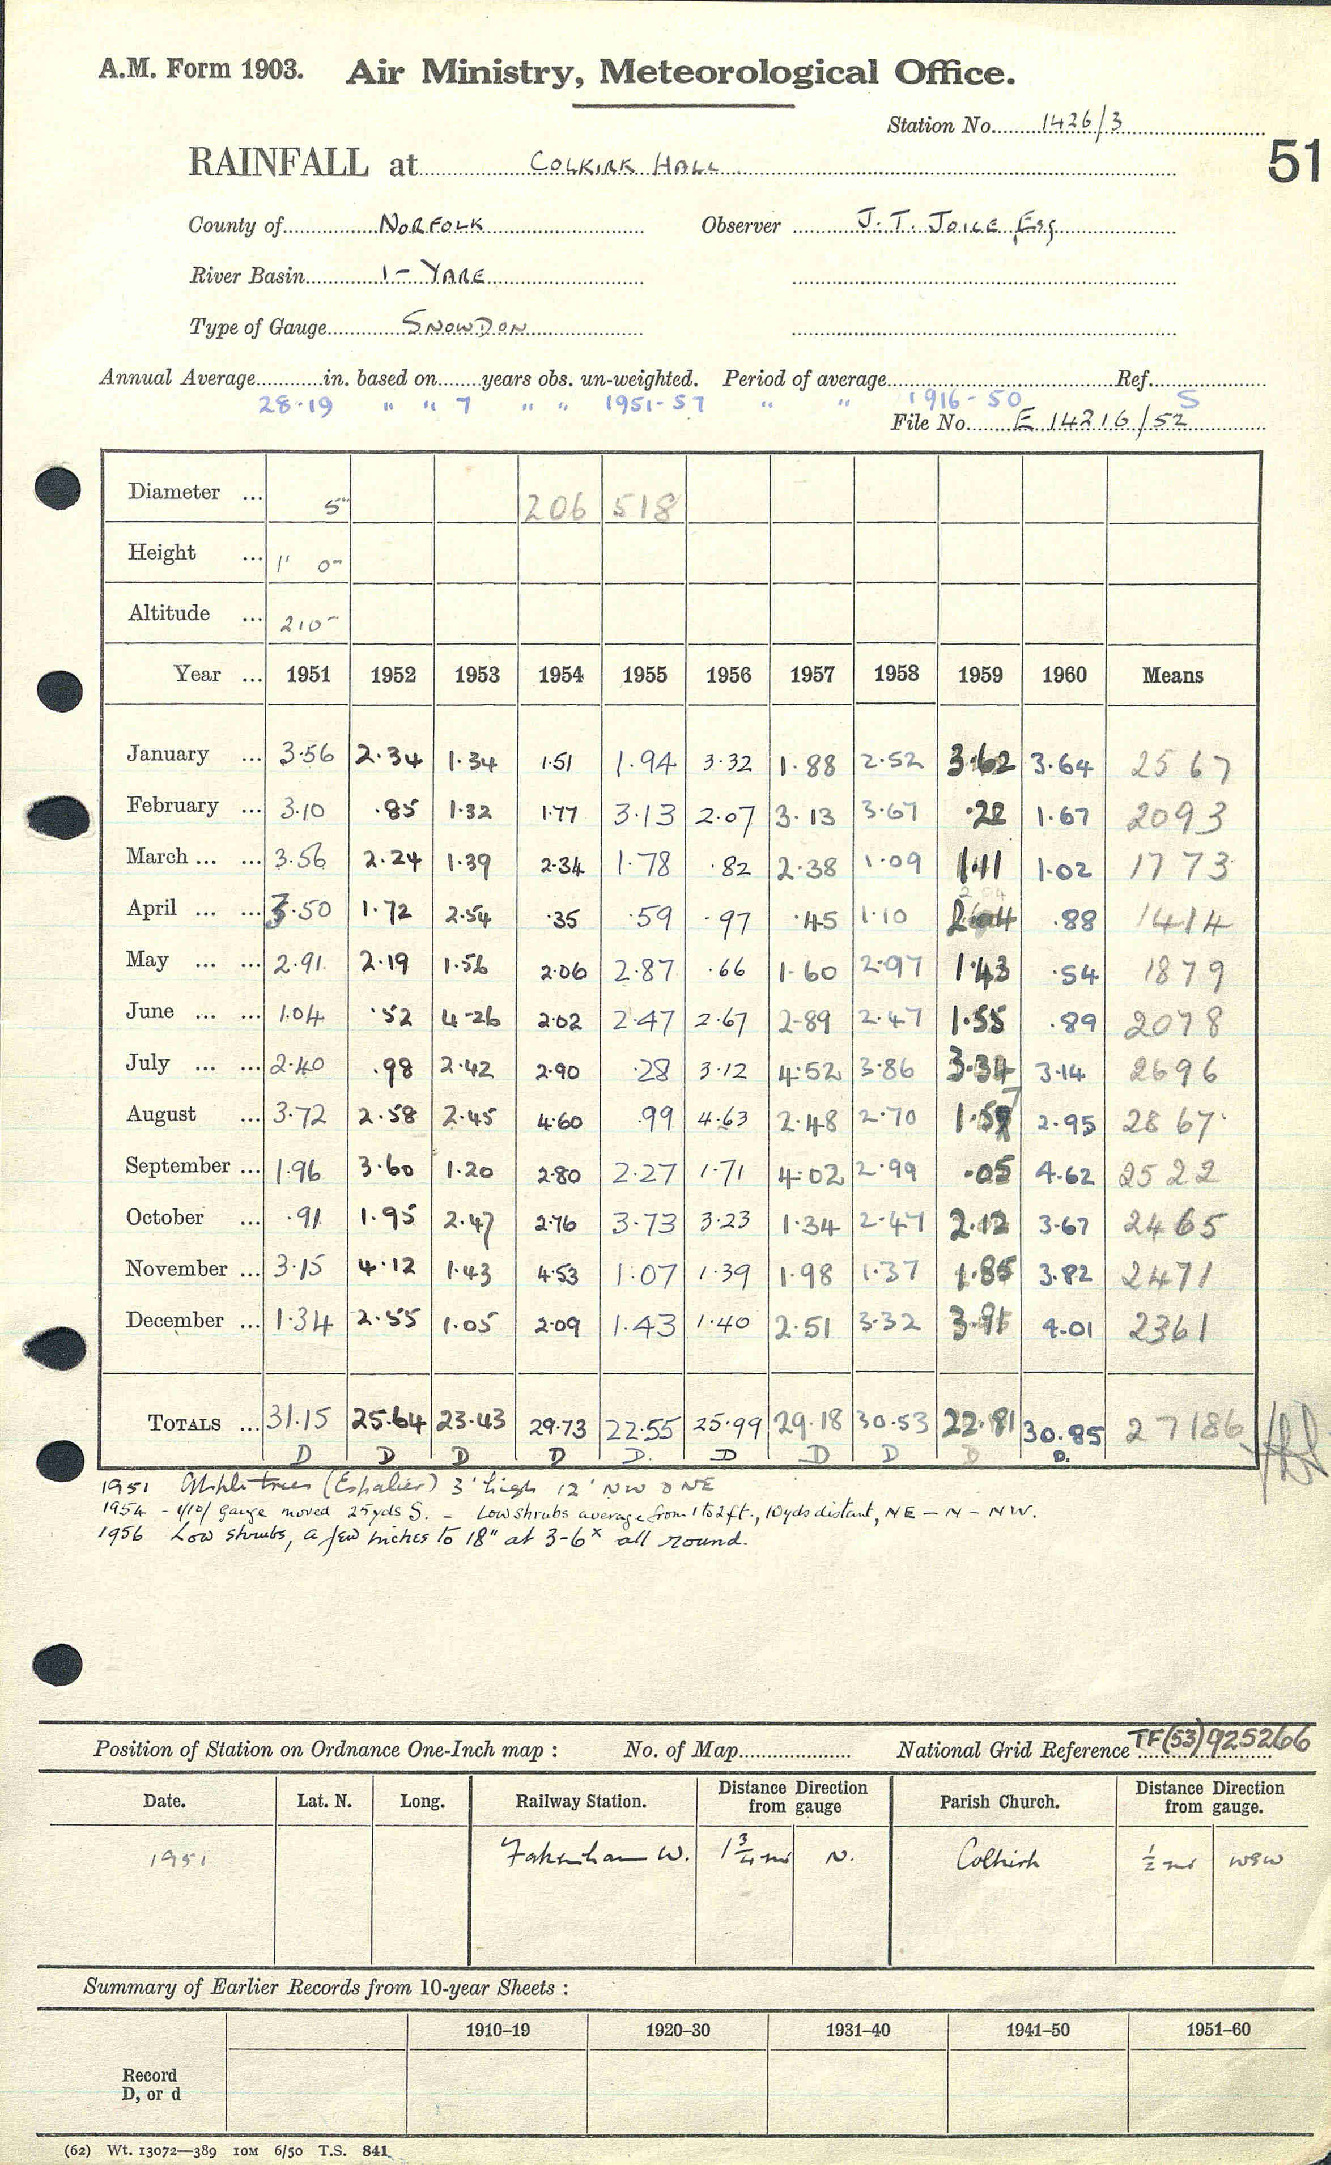 A.M. Form 1903. Air Ministry, Meteorological Office.
Station No. 1426/3
51
RAINFALL at COLKIRK HALL
County of NORFOLK Observer J. T. JOICE Esq
River Basin 1 - YARE
Type of Gauge SNOWDON
Annual Average in. based on years obs. un-weighted. Period of average Ref.
28.19 " " 7 " " 1951-57 " " 1916-50 S
File No. E 14216/52
Diameter ... 5" 206 518
Height ... 1' 0"
Altitude ... 210
Year ... 1951 1952 1953 1954 1955 1956 1957 1958 1959 1960 Means
January ... 3.56 2.34 1.34 1.51 1.94 3.32 1.88 2.52 3.62 3.64 25 67
February ... 3.10 .85 1.32 1.77 3.13 2.07 3.13 3.67 .22 1.67 2093
March ... ... 3.56 2.24 1.39 2.34 1.78 .82 2.38 1.09 1.41 1.02 17 73
April ... ... 3.50 1.72 2.54 .35 .59 .97 .45 1.10 2.04 .88 1414
May ... ... 2.91 2.19 1.56 2.06 2.87 .66 1.60 2.97 1.43 .54 1879
June ... ... 1.04 .52 4.26 2.02 2.47 2.67 2.89 2.47 1.55 .89 2078
July ... ... 2.40 .98 2.42 2.90 .28 3.12 4.52 3.86 3.34 3.14 2696
August ... 3.72 2.58 2.45 4.60 .99 4.63 2.48 2.70 1.57 2.95 28 67
September ... 1.96 3.60 1.20 2.80 2.27 1.71 4.02 2.99 .05 4.62 2522
October ... .91 1.95 2.47 2.76 3.73 3.23 1.34 2.47 2.12 3.67 2465
November ... 3.15 4.12 1.43 4.53 1.07 1.39 1.98 1.37 1.85 3.82 2471
December ... 1.34 2.55 1.05 2.09 1.43 1.40 2.51 3.32 4.01 2361
TOTALS ... 31.15 25.64 23.43 29.73 22.55 25.99 29.18 30.53 22.81 30.85 27186
D D D D D. D D D D D.
1951 Apple trees (Espalier) 3' high 12' NW & NE
1954 - 1/10/ gauge moved 25yds S. - Low shrubs average from 1 to 2 ft., 10yds distant, NE - N - NW.
1956 Low shrubs, a few inches to 18" at 3-6x all round.
Position of Station on Ordnance One-Inch map : No. of Map National Grid Reference TF(53)925266
Date. Lat. N. Long. Railway Station. Distance Direction from gauge Parish Church. Distance Direction from gauge.
1951 Fakenham W. 1 3/4 mi N. Colkirk 1/2 mi WSW
Summary of Earlier Records from 10-year Sheets :
1910–19 1920–30 1931–40 1941–50 1951–60
Record
D, or d
(62) Wt. 13072—389 10M 6/50 T.S. 841